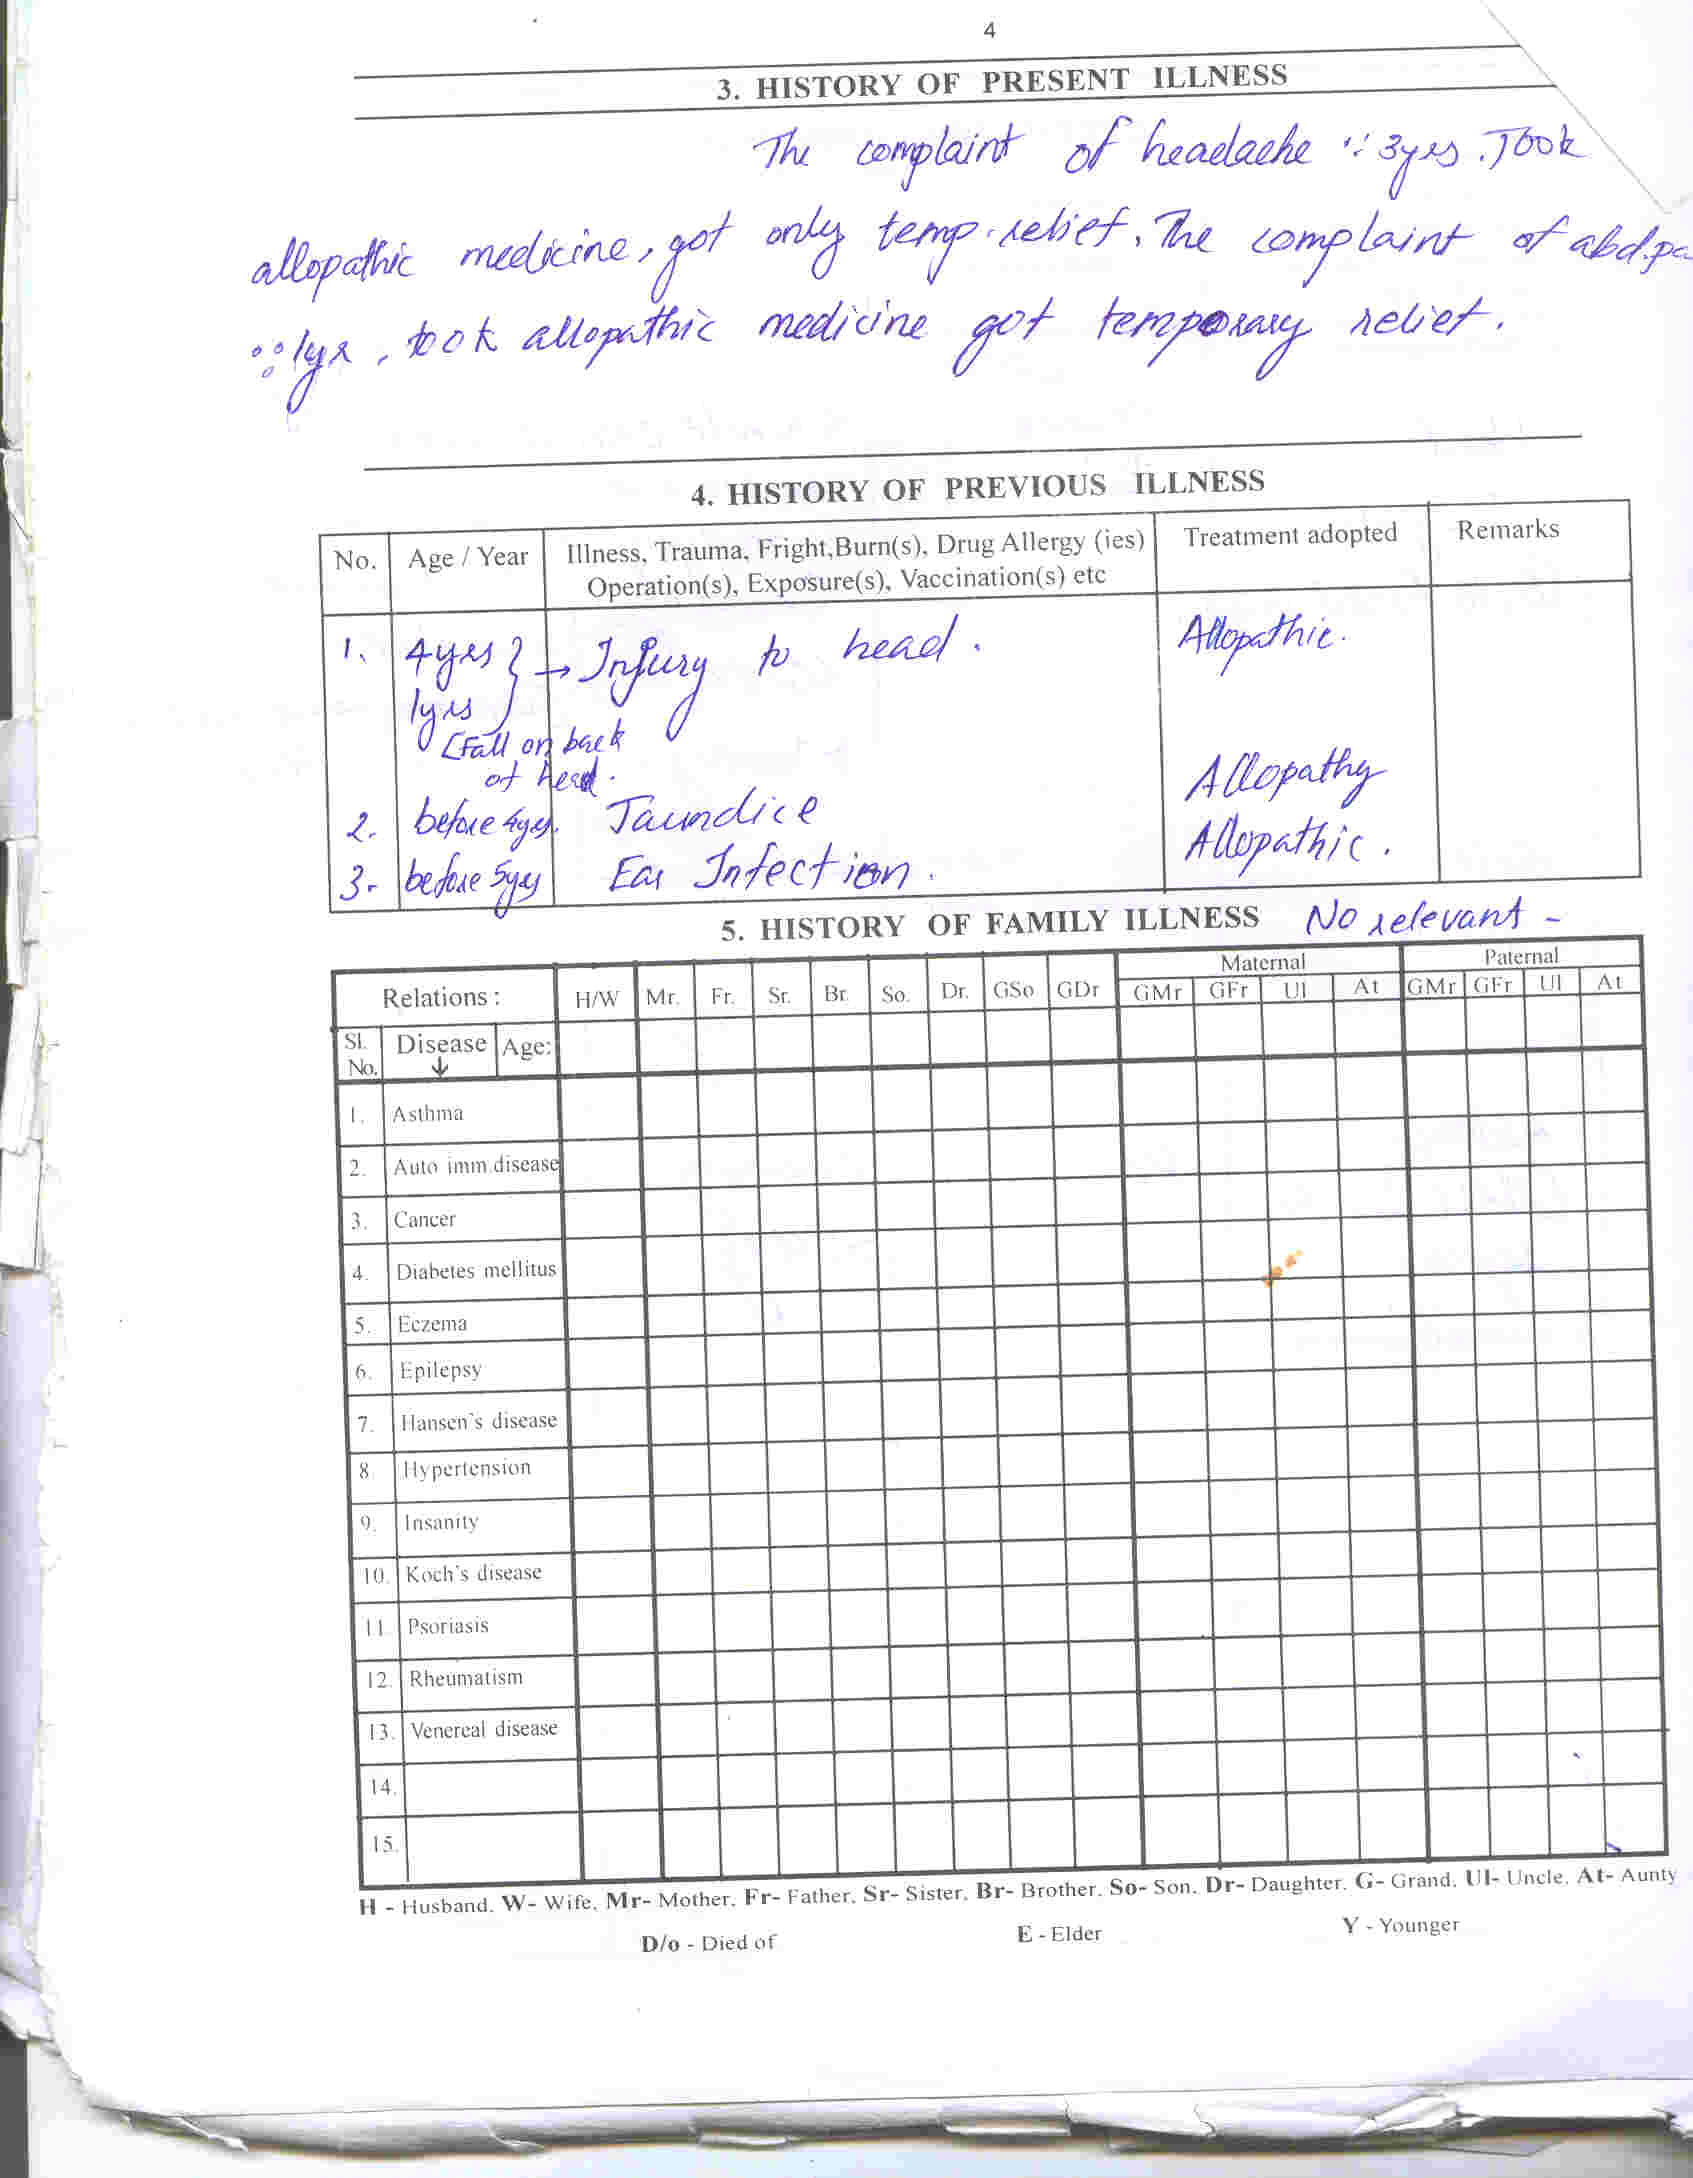 4
3. HISTORY OF PRESENT ILLNESS
The complaint of headache ∵ 3yrs. Took
allopathic medicine, got only temp. relief. The complaint of abd.pa
1yr, took allopathic medicine got temporary relief.
4. HISTORY OF PREVIOUS ILLNESS
No. Age / Year Illness, Trauma, Fright,Burn(s), Drug Allergy (ies) Treatment adopted Remarks
Operation(s), Exposure(s), Vaccination(s) etc
1. 4yrs } → Injury to head. Allopathic.
1yrs
[Fall on back
of head.
2. before 4yrs. Jaundice Allopathy
3. before 5yrs Ear Infection. Allopathic.
5. HISTORY OF FAMILY ILLNESS No relevant -
Maternal Paternal
Relations : H/W Mr. Fr. Sr. Br. So. Dr. GSo GDr GMr GFr Ul At GMr GFr Ul At
Sl. No. Disease ↓ Age:
1. Asthma
2. Auto imm.disease
3. Cancer
4. Diabetes mellitus
5. Eczema
6. Epilepsy
7. Hansen's disease
8 Hypertension
9. Insanity
10. Koch's disease
11. Psoriasis
12. Rheumatism
13. Venereal disease
14.
15.
H - Husband, W- Wife, Mr- Mother, Fr- Father, Sr- Sister, Br- Brother, So- Son, Dr- Daughter, G- Grand, Ul- Uncle, At- Aunty
D/o - Died of E - Elder Y - Younger